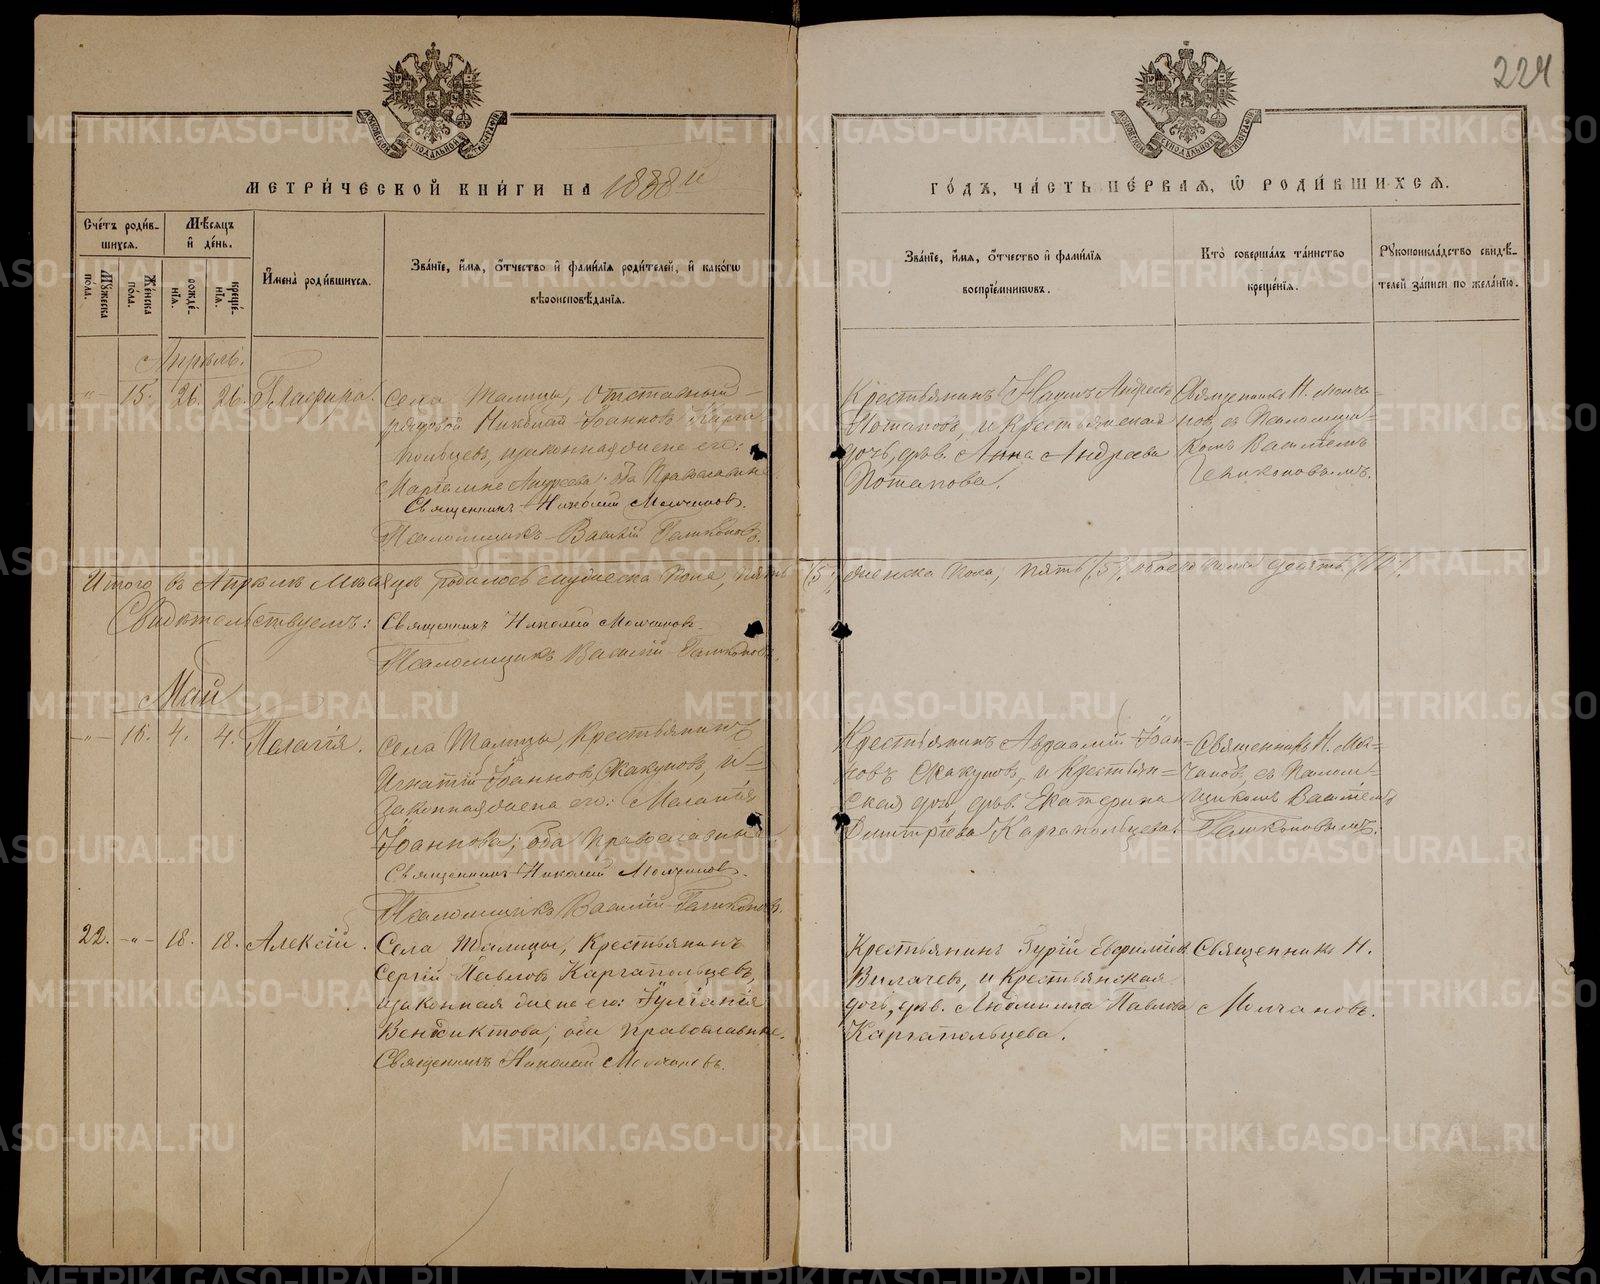 224
МЕТРИ́ЧЕСКОЙ КНИ́ГИ НА 1888 й
ГО́ДЪ, ЧА́СТЬ ПЕ́РВАЯ, Ѡ РОДИ́ВШИХСЯ.
Сче́тъ роди́вшихся.
Мѣ́сяцъ и҆ де́нь.
Му́жеска по́ла.
Же́нска по́ла.
рожде́нїѧ.
креще́нїѧ.
И҆мена̀ роди́вшихся.
Зва́нїе, и҆́мѧ, ѻ҆́тчество и҆ фами́лїѧ роди́телей, и҆ како́гѡ
вѣроисповѣ́данїѧ.
Зва́нїе, и҆́мѧ, ѻ҆́тчество и҆ фами́лїѧ
воспрїе́мниковъ.
Кто̀ соверша́лъ та́инство
креще́нїѧ.
Рꙋкоприкла́дство свидѣ́-
телей за́писи по жела́нїю.
Апрѣль.
15. 26. 26. Глафира.
Села Талицы, Отставный
рядовой Николай Іоанновъ Карга
польцевъ, и законная жена его:
Андреева; оба Православные
Священникъ Николай Молчановъ.
Псаломщикъ Василій
Крестьянинъ Наумъ Андреевъ
Потаповъ, и крестьянская
дочь, дѣв. Анна Андреева
Потапова.
Священникъ Н. Молча-
новъ, съ Псаломщи-
комъ Василіемъ
Итого въ Апрѣлѣ Мѣсяцѣ родилось мужеска пола, пять (5), женска пола, пять (5), обоего пола десять (10).
Свидѣтельствуемъ: Священникъ Николай Молчановъ.
Псаломщикъ Василій
Май
16. 4. 4. Пелагія.
Села Талицы, Крестьянинъ
Игнатій Іоанновъ Скакуновъ, и
законная жена его: Меланія
Іоаннова; оба православные
Священникъ Николай Молчановъ.
Псаломщикъ Василій
Крестьянинъ Авраамій Іоан-
новъ Скакуновъ, и крестьян-
ская дочь, дѣв. Екатерина
Димитріева Каргапольцева.
Священникъ Н. Мол-
чановъ, съ Псалом-
щикомъ Василіемъ
22. 18. 18. Алексій.
Села Талицы, Крестьянинъ
Сергій Павловъ Каргапольцевъ,
и законная жена его: Іуліанія
Венедиктова; оба православные.
Священникъ Николай Молчановъ.
Крестьянинъ Гурій Евфиміев
Вилачевъ, и крестьянская
дочь, дѣв. Людмилла Павлова
Каргапольцева.
Священникъ Н.
Молчановъ.
METRIKI.GASO-URAL.RU